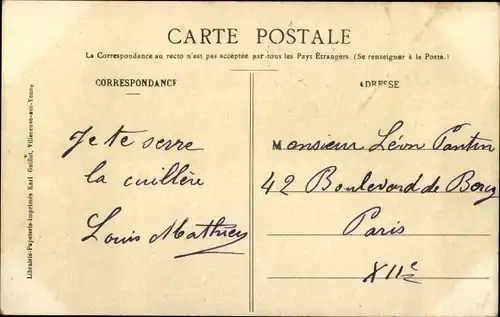 CARTE POSTALE
La Correspondance au recto n'est pas acceptée par tous les Pays Étrangers (Se renseigner à la Poste.)
CORRESPONDANCE
Je te serre
la cuillère
Louis Mathieu
ADRESSE
Monsieur Léon Pantin
42 Boulevard de Bercy
Paris
XIIe
Librairie-Papeterie-Imprimés Karl Guillot, Villeneuve-sur-Yonne